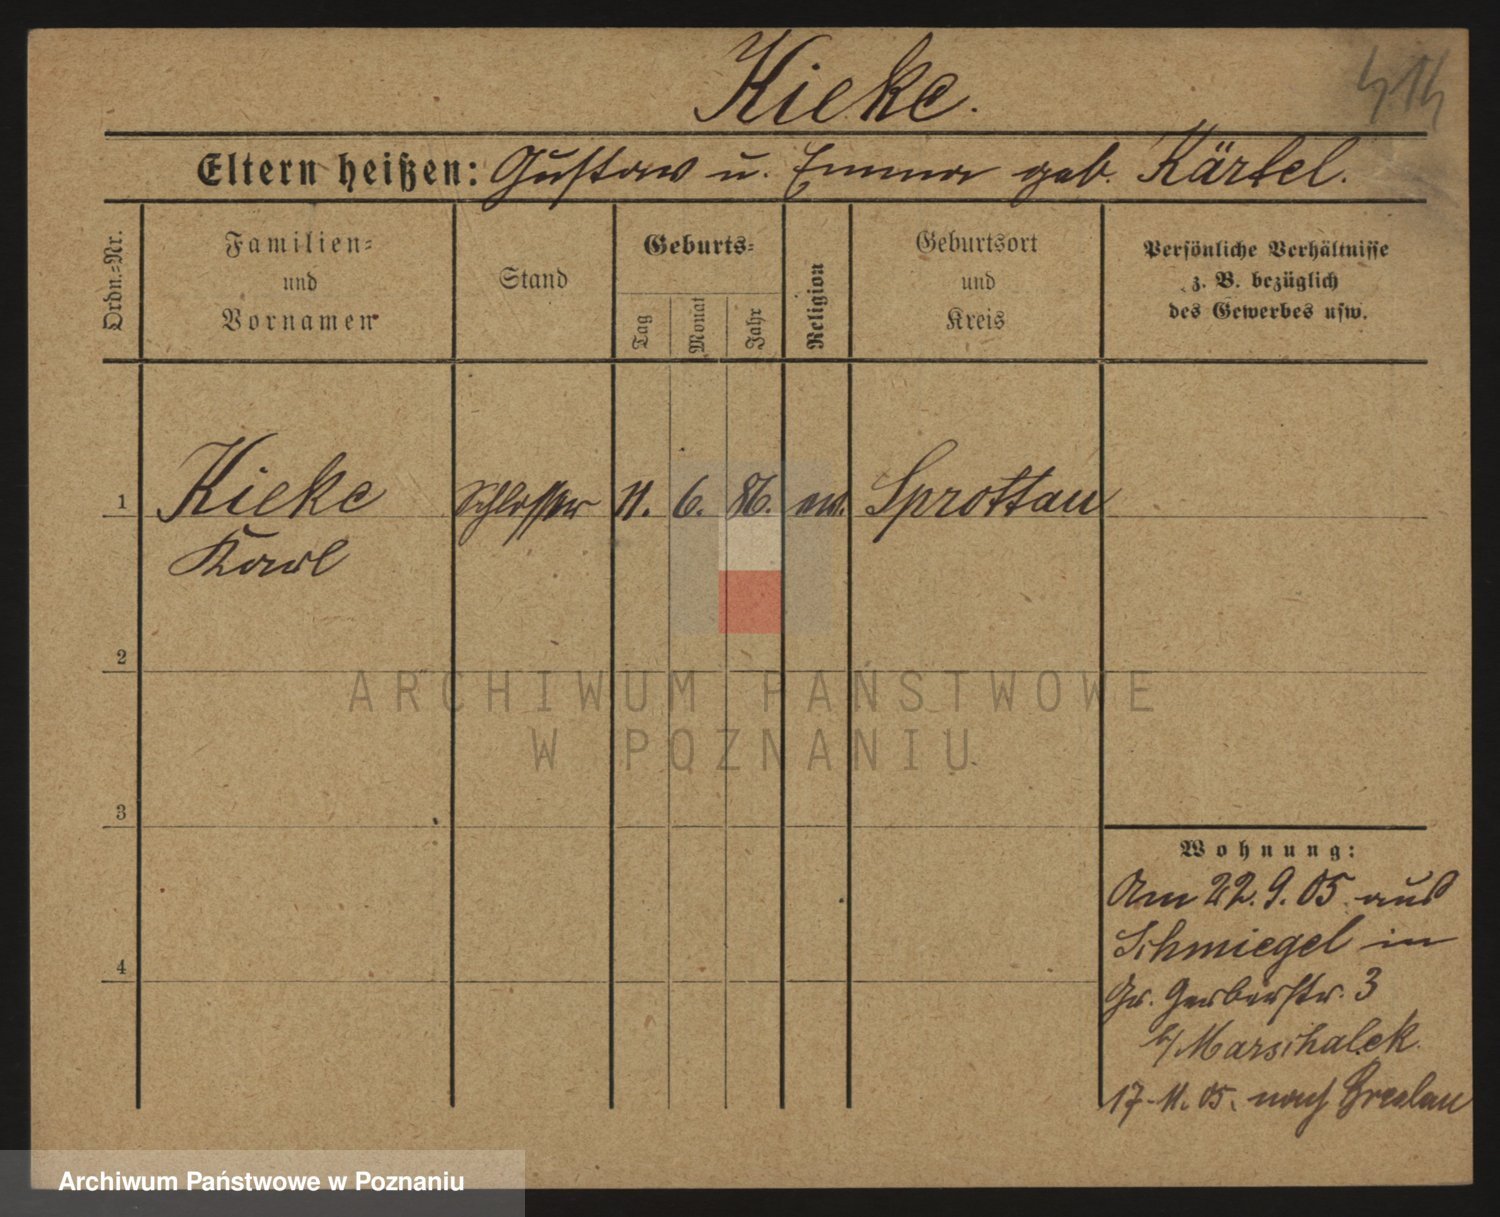 Kieke.
Eltern heißen: Gustav u. Emma geb. Kärtel.
Ordn.=Nr.
Familien=
und
Vornamen
Stand
Geburts=
Tag
Monat
Jahr
Religion
Geburtsort
und
Kreis
Persönliche Verhältnisse
z. B. bezüglich
des Gewerbes usw.
1 Kieke Schlosser 11. 6. 86. ev. Sprottau
Karl
2
3
4
ARCHIWUM PAŃSTWOWE
W POZNANIU
Wohnung:
Am 22. 9. 05. aus
Schmiegel in
Gr. Gerberstr. 3
b/ Marschalek.
17. 11. 05. nach Breslau
Archiwum Państwowe w Poznaniu